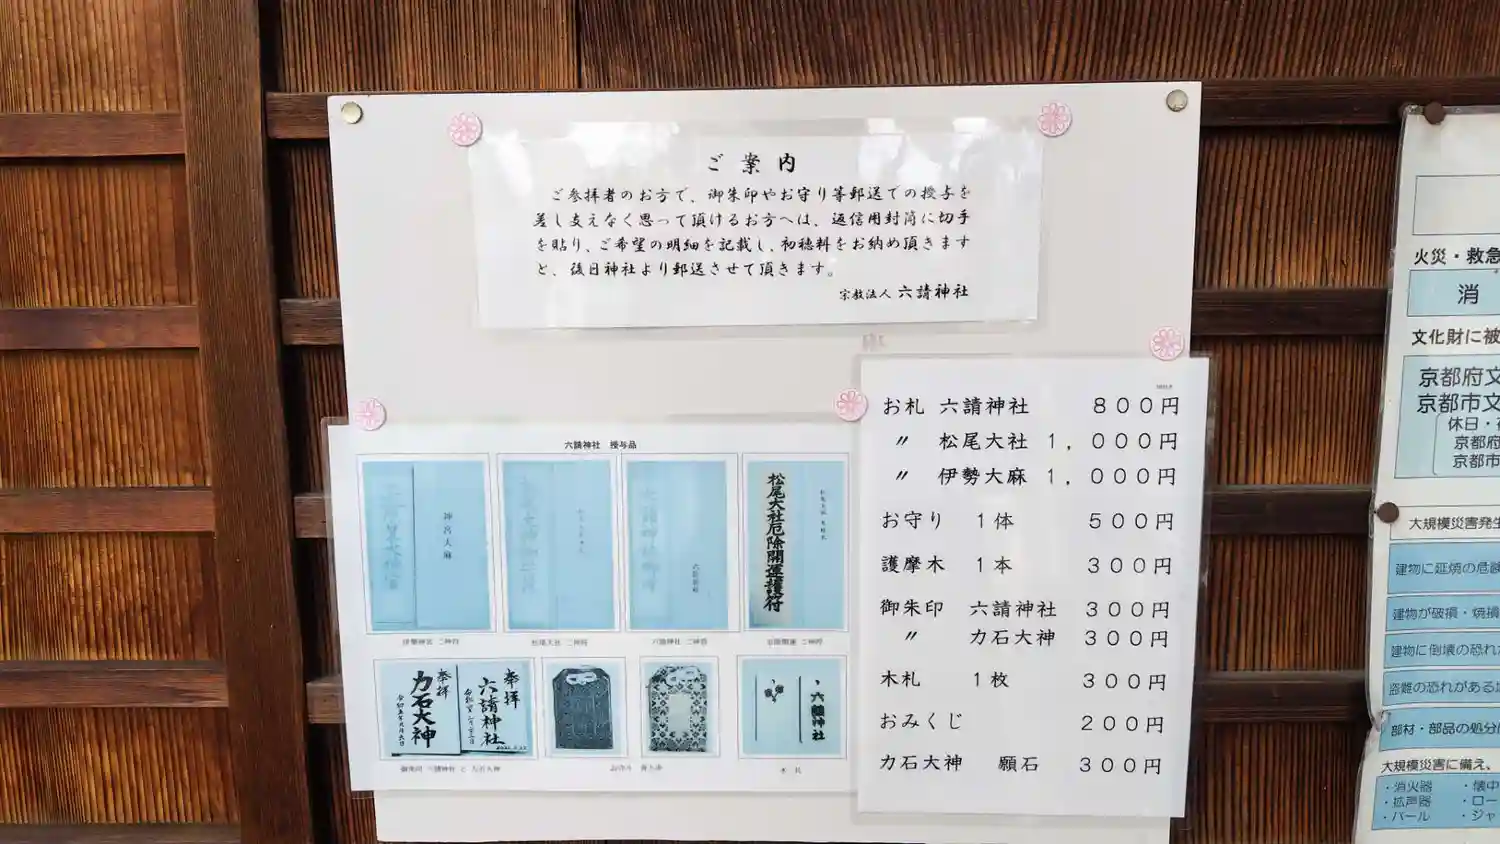 ご案内
ご参拝者のお方で、御朱印やお守り等郵送での授与を
差し支えなく思って頂けるお方へは、返信用封筒に切手
を貼り、ご希望の明細を記載し、初穂料をお納め頂きます
と、後日神社より郵送させて頂きます。
宗教法人 六請神社
六請神社 授与品
神宮大麻
松尾大社厄除開運護符
奉拝
力石大神
奉拝
六請神社
六請神社
お札 六請神社 800円
〃 松尾大社 1,000円
〃 伊勢大麻 1,000円
お守り 1体 500円
護摩木 1本 300円
御朱印 六請神社 300円
〃 力石大神 300円
木札 1枚 300円
おみくじ 200円
力石大神 願石 300円
火災・救急
消
文化財に被
京都府文
京都市文
休日・
京都府
京都市
大規模災害発生
建物に延焼の危険
建物が破損・焼損
建物に倒壊の恐れ
盗難の恐れがある
部材・部品の処分
大規模災害に備え、
・消火器 ・懐中
・拡声器 ・ロー
・バール ・ジャ